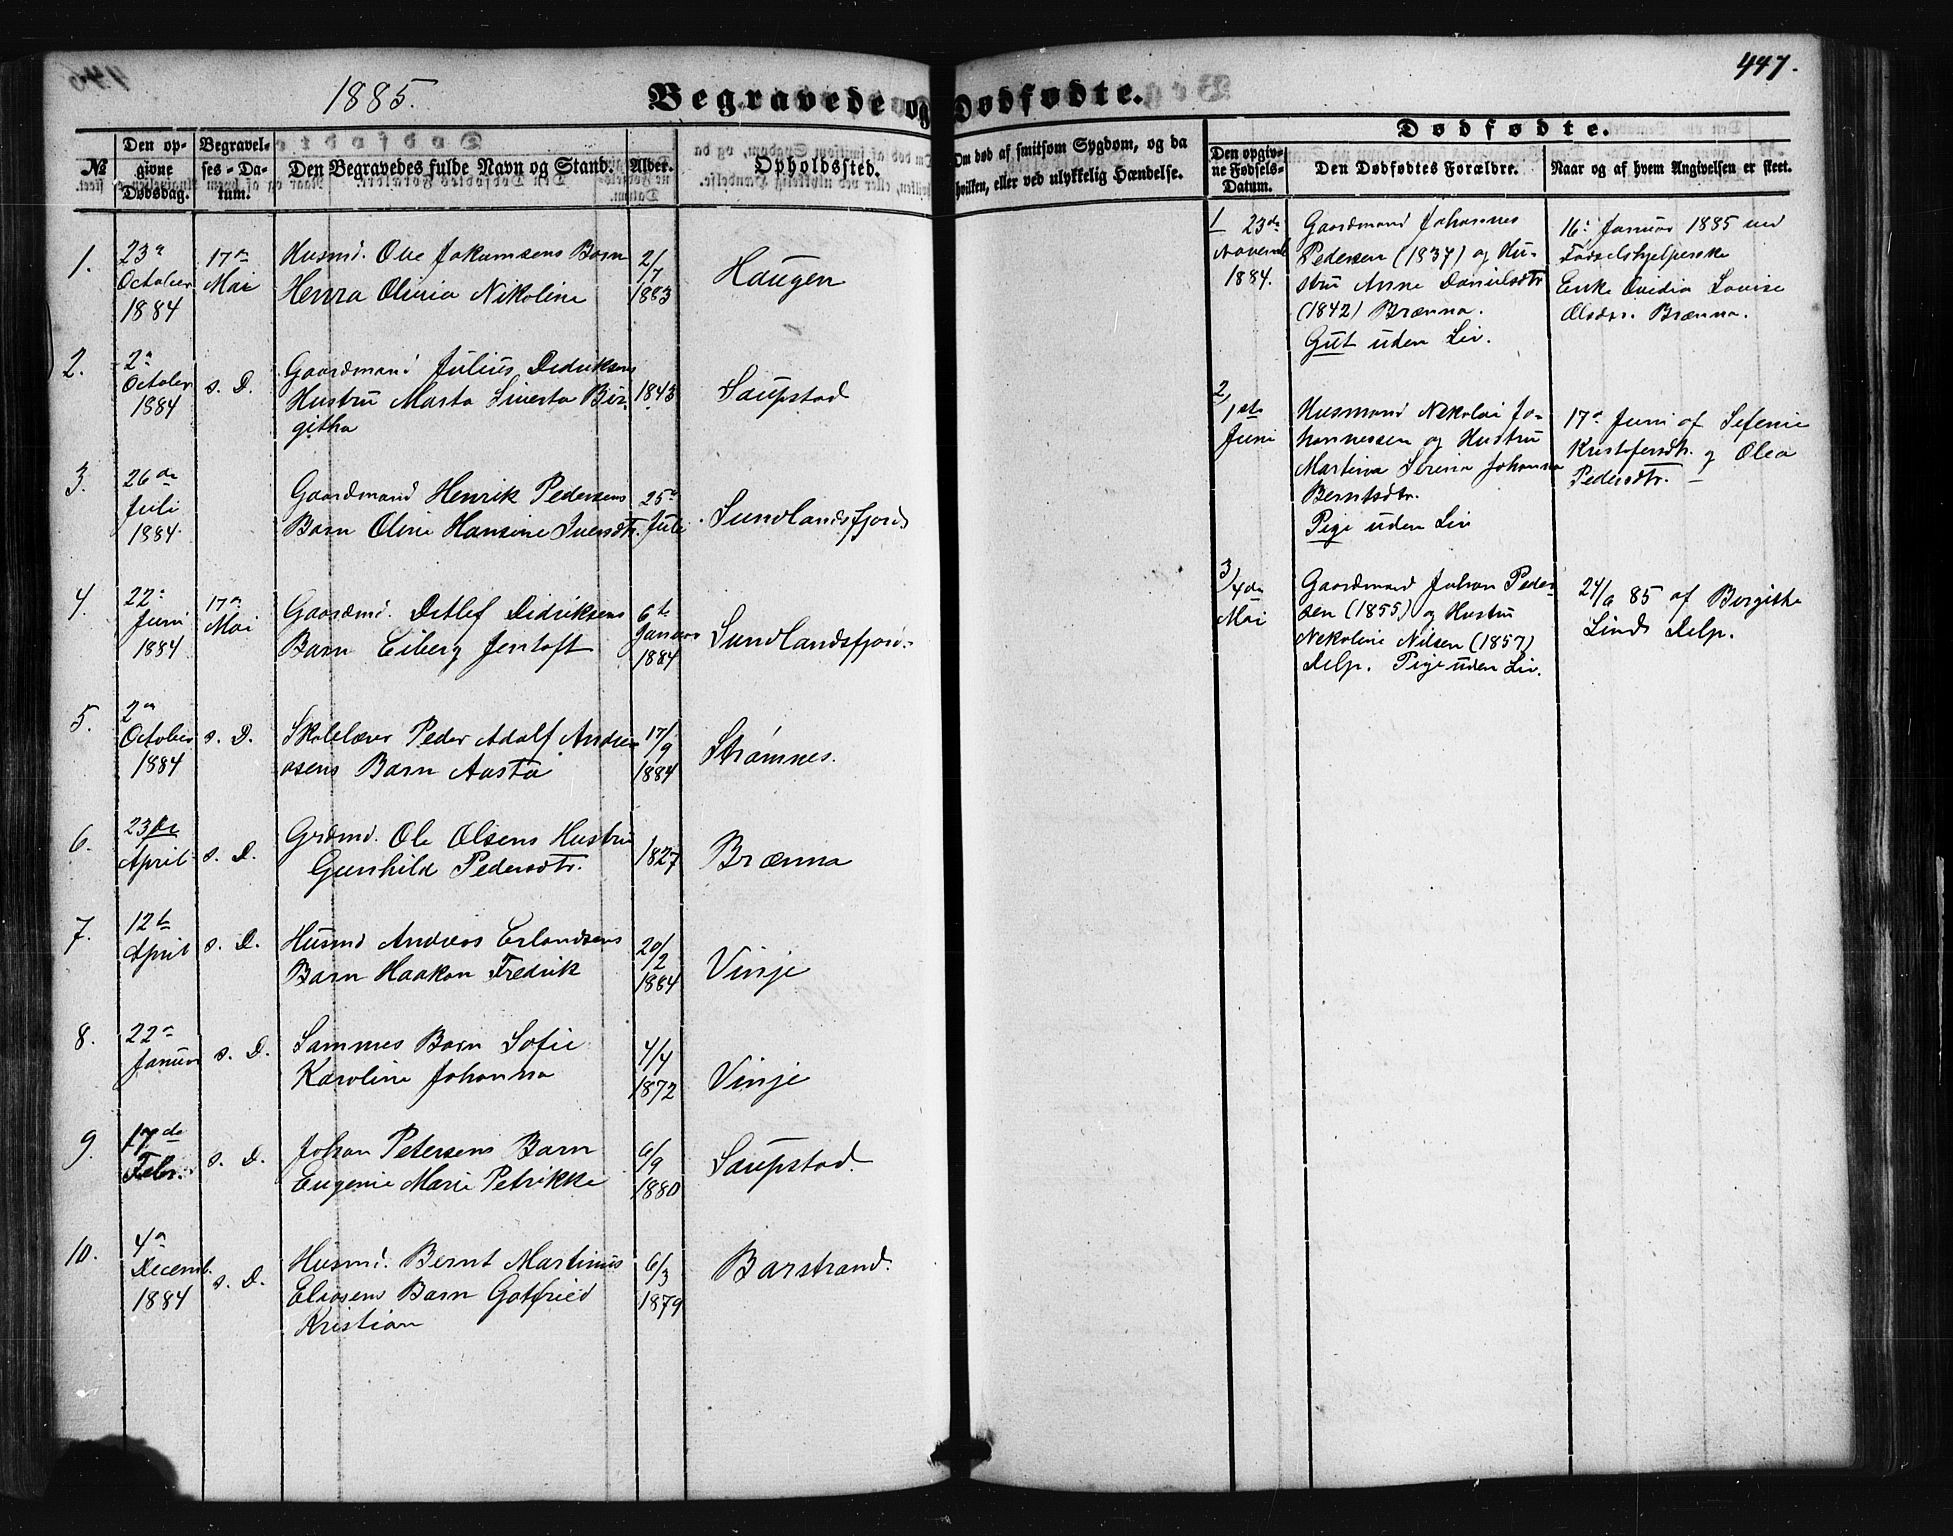 1885.
Begravede og Dødfødte.
447.
№
Den op-
givne
Dødsdag.
Begravel-
ses-Da-
tum.
Den Begravedes fulde Navn og Stand.
Alder.
Opholdssted.
Om død af smitsom Sygdom, og da
hvilken, eller ved ulykkelig Hændelse.
Dødfødte.
Den opgiv-
ne Fødsels-
Datum.
Den Dødfødtes Forældre.
Naar og af hvem Angivelsen er skeet.
1.
23de
October
1884
17de
Mai
Husmd. Ole Jokumsens Barn
Henra Olivia Nikoline
2/7
1883
Haugen
2.
2den
October
1884
s. D.
Gaardmand Julius Didriksens
Hustru Marta Siverta Bir-
githa
1843
Saupstad
3.
26de
Juli
1884.
Gaardmand Henrik Pedersens
Barn Oline Hansine Iversdtr.
25de
Juli
Sundlandsfjord
4.
22de
Juni
1884
17de
Mai
Gaardmd. Ditlef Didriksens
Barn Eiberg Jentoft
6te
Januar
1884
Sundlandsfjord.
5.
2den
October
1884
s. D.
Skolelærer Peder Adolf Andre-
asens Barn Aasta
17/9
1884
Strømnes.
6.
23de
April
s. D.
Grdmd. Ole Olsens Hustru
Gunhild Pedersdtr.
1827
Brænna
7.
12te
April
s. D.
Husmd Andreas Erlandsens
Barn Haakon Fredrik
20/2
1884
Vinje
8.
22de
Januar
s. D.
Sammes Barn Sofie
Karoline Johanna
4/4
1872
Vinje
9.
17de
Febr.
s. D.
Johan Petersens Barn
Eugenie Marie Petrikke
6/9
1880
Saupstad.
10.
4de
Decemb.
1884
s. D.
Husmd. Bernt Martinus
Eliasens Barn Gotfried
Kristian
6/3
1879
Barstrand.
1
23de
Novemb
1884.
Gaardmand Johannes
Pedersen (1837) og Hu-
stru Anne Danielsdtr
(1842) Brænna.
Gut uden Liv.
16. Januar 1885 ved
Fødselshjelperske
Enke Ovedia Lovise
Olsdtr. Brænna.
2,
1ste
Juni
Husmand Nikolai Jo-
hannessen og Hustru
Martina Serina Johanna
Berntsdtr.
Pige uden Liv
17de Juni af Sefenie
Kristofersdtr. og Olea
Pedersdtr.
3,
4de
Mai
Gaardmand Johan Peder-
sen (1855) og Hustru
Nekoline Nilsen (1857)
Delp. Pige uden Liv.
24/6 85 af Birgithe
Lind Delp.